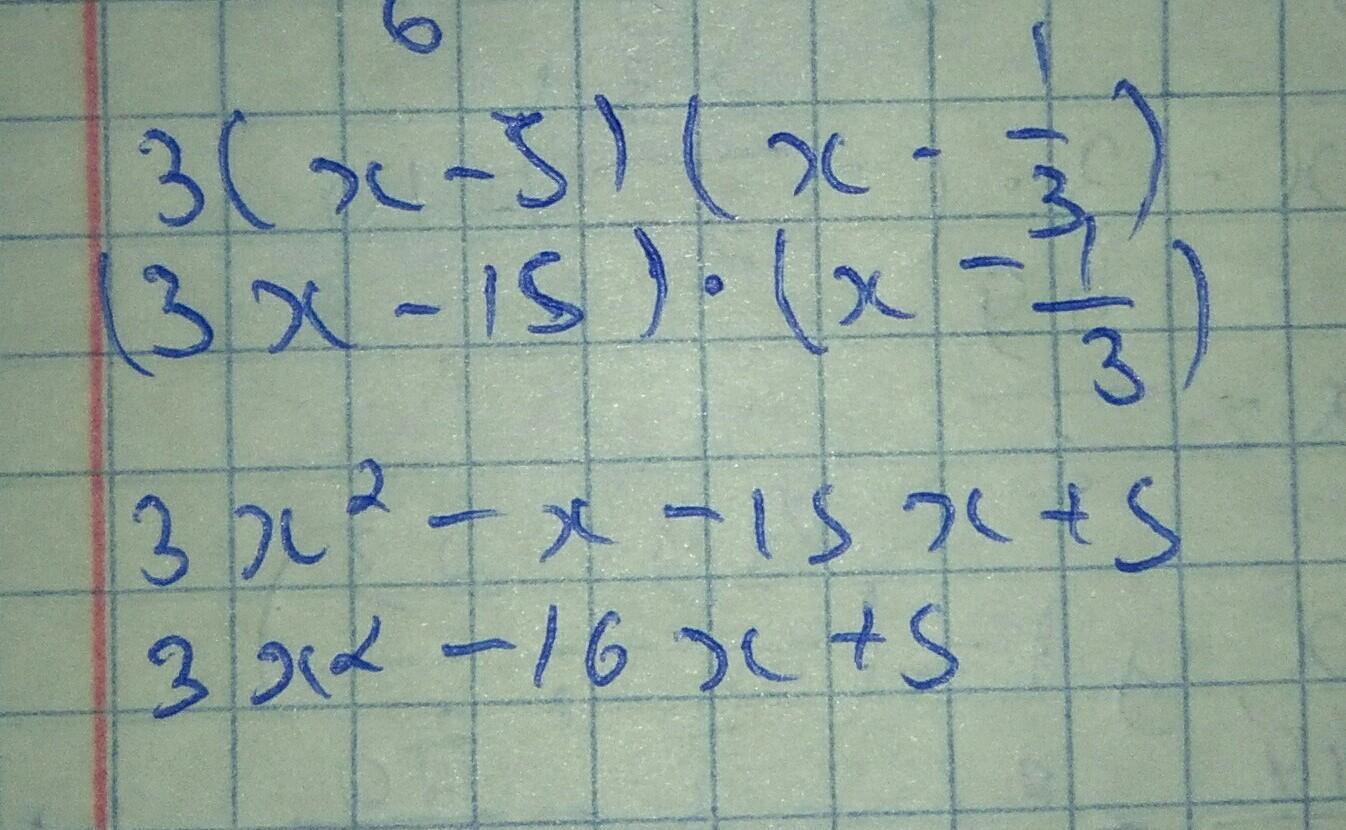 6
3(x-5)(x-1/3)
(3x-15)·(x-1/3)
3x²-x-15x+5
3x²-16x+5